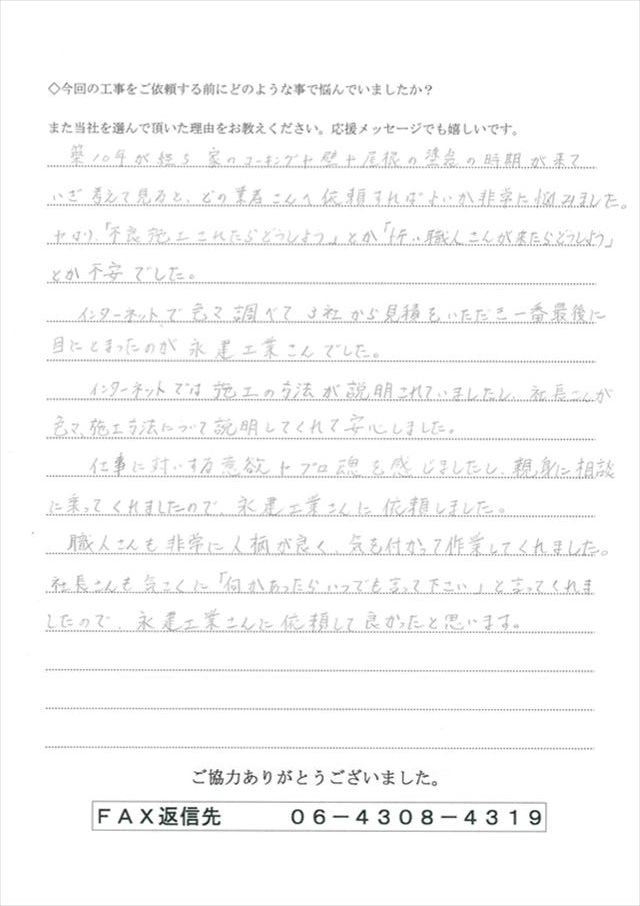 ◇今回の工事をご依頼する前にどのような事で悩んでいましたか？
また当社を選んで頂いた理由をお教えください。応援メッセージでも嬉しいです。
築10年が経ち家のコーキングや壁や屋根の塗装の時期が来て
いざ考えて見ると、どの業者さんへ依頼すればよいか非常に悩みました。
やはり、「不良施工されたらどうしよう」とか「 職人さんが来たらどうしよう」
とか不安でした。
インターネットで色々調べて3社から見積をいただき一番最後に
目にとまったのが永建工業さんでした。
インターネットでは施工の方法が説明されていましたし、社長さんが
色々、施工方法について説明してくれて安心しました。
仕事に対いする意欲やプロ魂を感じましたし、親身に相談
に乗ってくれましたので、永建工業さんに依頼しました。
職人さんも非常に人柄が良く、気を付かって作業してくれました。
社長さんも気さくに「何かあったらいつでも言って下さい」と言ってくれま
したので、永建工業さんに依頼して良かったと思います。
ご協力ありがとうございました。
ＦＡＸ返信先　０６－４３０８－４３１９